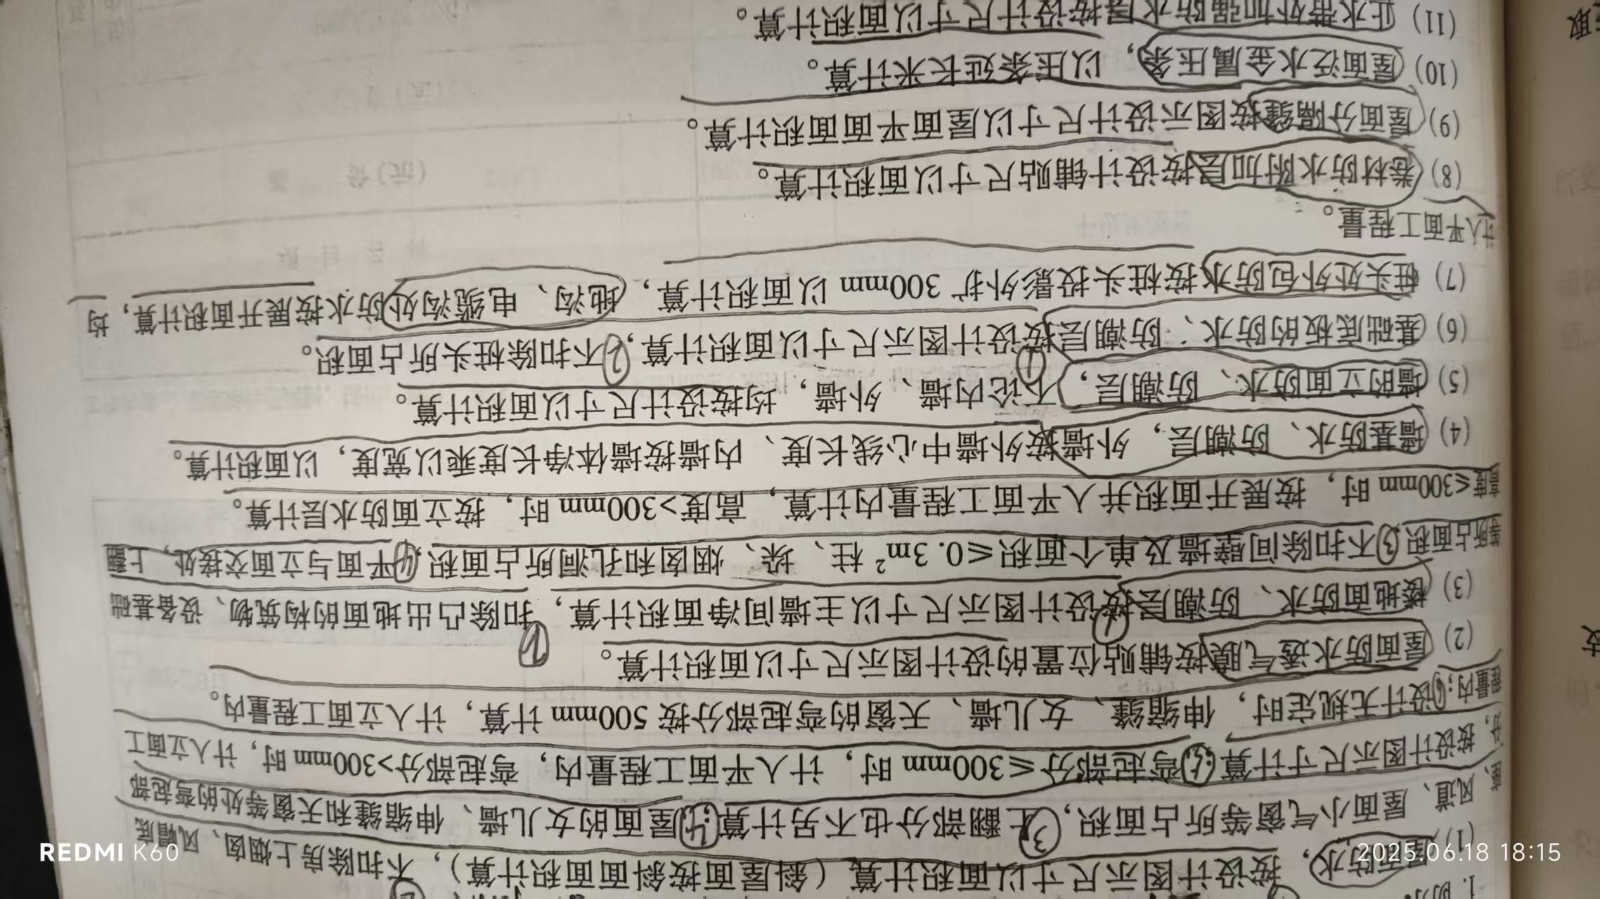 1. 防水
(1) 屋面防水，按设计图示尺寸以面积计算（斜屋面按斜面面积计算），不扣除房上烟囱、风帽底
座、风道、屋面小气窗等所占面积，③上翻部分也不另计算；④屋面的女儿墙、伸缩缝和天窗等处的弯起部
分，按设计图示尺寸计算；⑤弯起部分≤300mm 时，计入平面工程量内，弯起部分>300mm 时，计入立面工
程量内；⑥设计无规定时，伸缩缝、女儿墙、天窗的弯起部分按 500mm 计算，计入立面工程量内。
(2) 屋面防水透气膜按铺贴位置的设计图示尺寸以面积计算。
(3) 楼地面防水、防潮层按设计图示尺寸以主墙间净面积计算，扣除凸出地面的构筑物、设备基础
等所占面积，③不扣除间壁墙及单个面积≤0.3m² 柱、垛、烟囱和孔洞所占面积，④平面与立面交接处，上翻
高度≤300mm 时，按展开面积并入平面工程量内计算，高度>300mm 时，按立面防水层计算。
(4) 墙基防水、防潮层，外墙按外墙中心线长度、内墙按墙体净长度乘以宽度，以面积计算。
(5) 墙的立面防水、防潮层，不论内墙、外墙，均按设计尺寸以面积计算。
(6) 基础底板的防水、防潮层按设计图示尺寸以面积计算，②不扣除桩头所占面积。
(7) 桩头处外包防水按桩头投影外扩 300mm 以面积计算，地沟、电缆沟处防水按展开面积计算，均
计入平面工程量。
(8) 卷材防水附加层按设计铺贴尺寸以面积计算。
(9) 屋面分隔缝按图示设计尺寸以屋面平面面积计算。
(10) 屋面泛水金属压条，以压条延长米计算。
(11) 止水带外加强防水层按设计尺寸以面积计算。
REDMI K60
2025.06.18 18:15